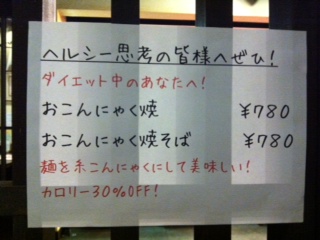 ヘルシー思考の皆様へぜひ!
ダイエット中のあなたへ!
おこんにゃく焼 ¥780
おこんにゃく焼そば ¥780
麺を糸こんにゃくにして美味しい!
カロリー30%OFF!